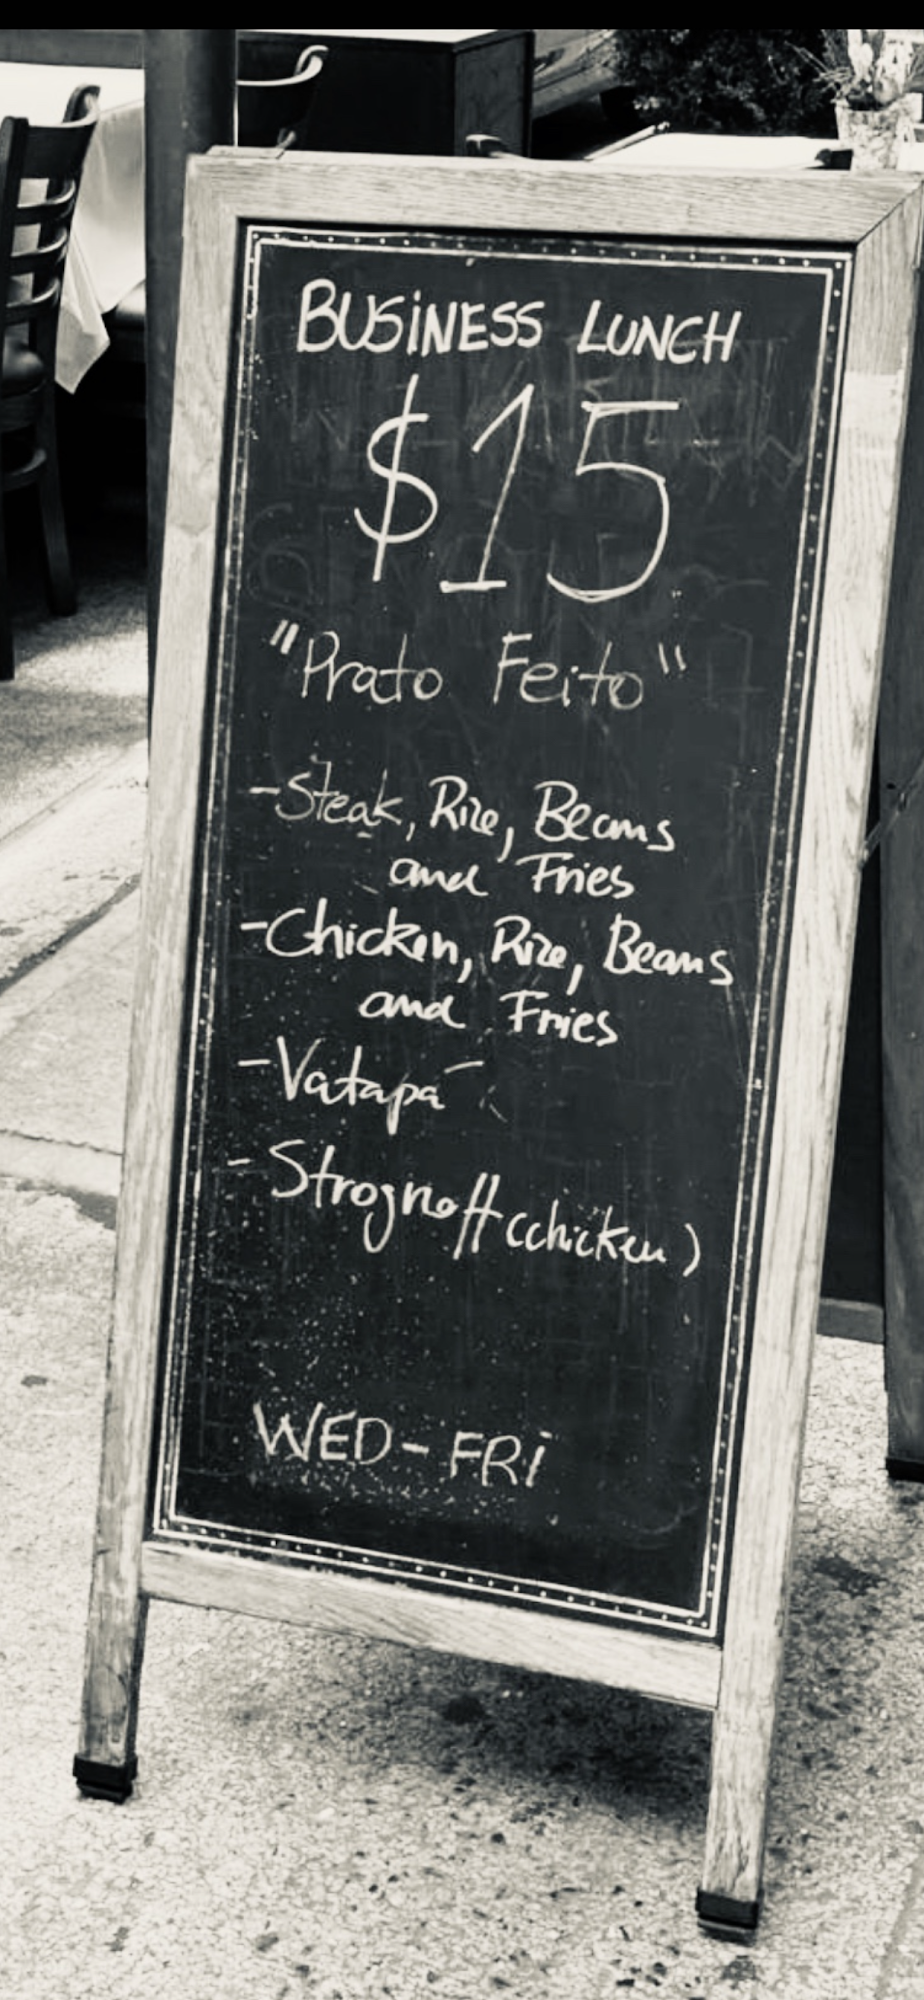 BUSINESS LUNCH
$15
"Prato Feito"
-Steak, Rice, Beans
and Fries
-Chicken, Rice, Beans
and Fries
-Vatapá
-Strognoff (chicken)
WED-FRI